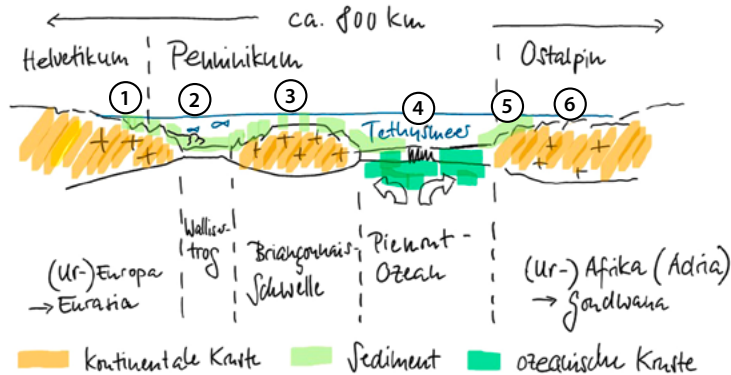 ca. 800 km
Helvetikum
Penninikum
Ostalpin
1
2
3
4
5
6
Tethysmeer
Walliser-
trog
Briançonnais-
Schwelle
Piemont-
Ozean
(Ur-) Europa
→ Eurasia
(Ur-) Afrika (Adria)
→ Gondwana
kontinentale Kruste
Sediment
ozeanische Kruste